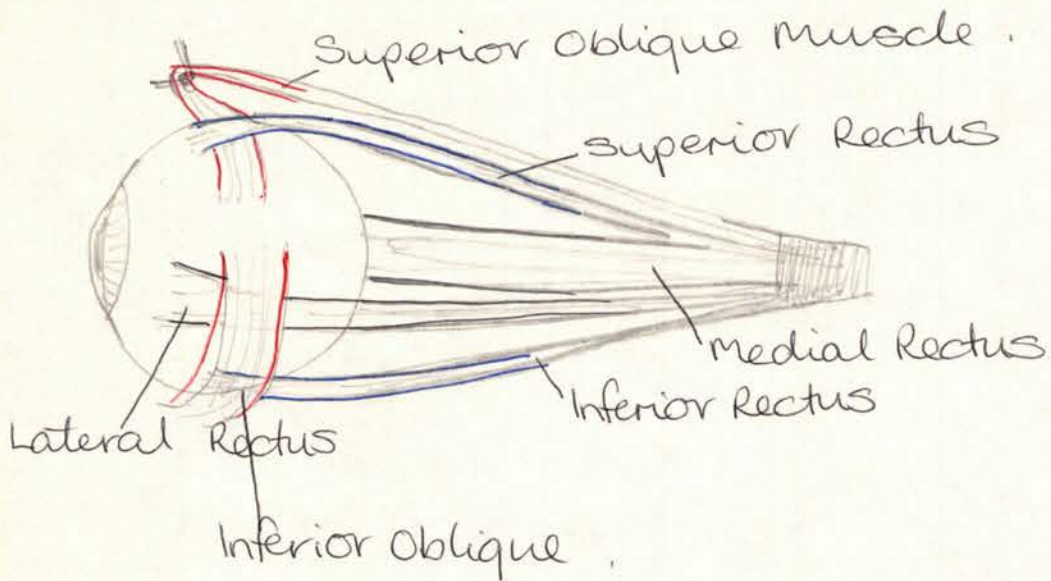 Superior Oblique Muscle .
Superior Rectus
Medial Rectus
Inferior Rectus
Lateral Rectus
Inferior Oblique .